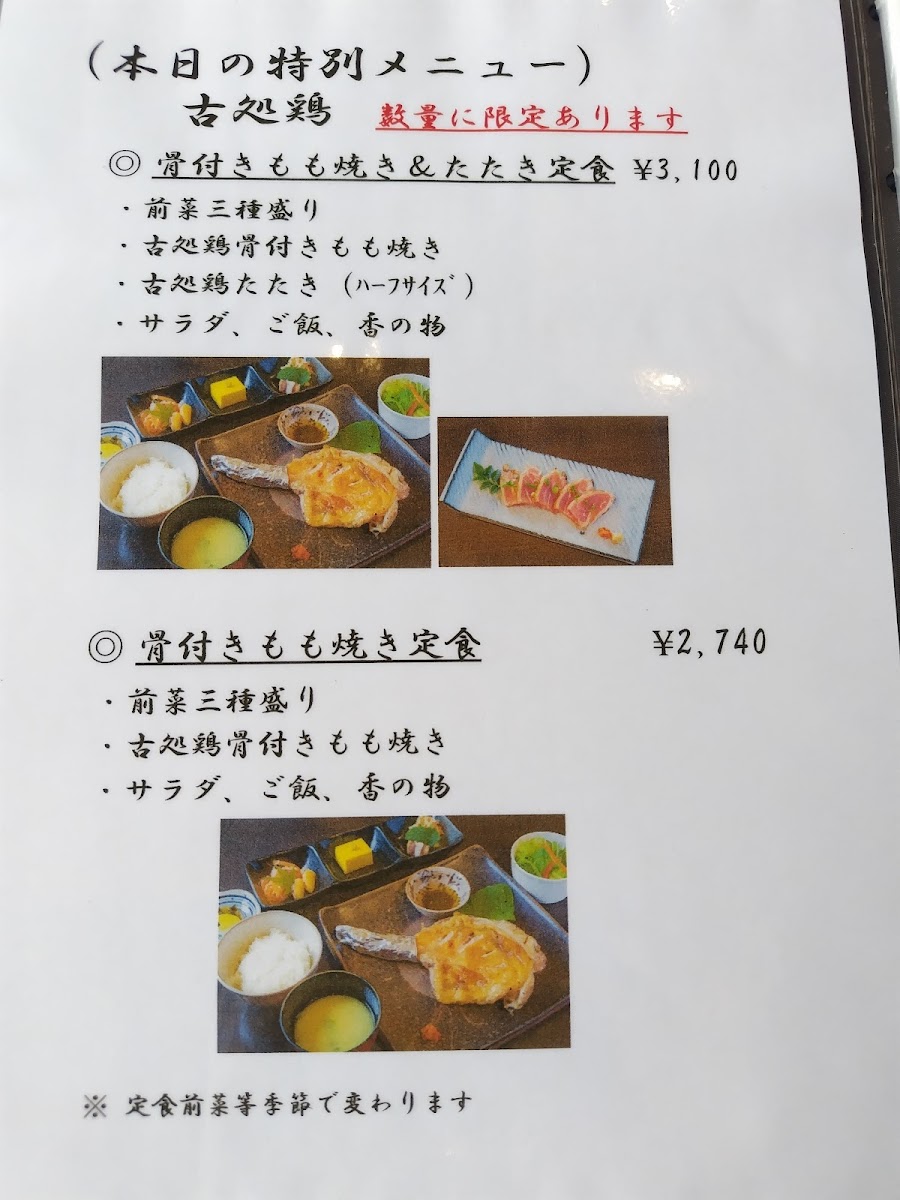 (本日の特別メニュー)
古処鶏 数量に限定あります
◎ 骨付きもも焼き&たたき定食 ¥3,100
・前菜三種盛り
・古処鶏骨付きもも焼き
・古処鶏たたき (ﾊｰﾌｻｲｽﾞ)
・サラダ、ご飯、香の物
◎ 骨付きもも焼き定食 ¥2,740
・前菜三種盛り
・古処鶏骨付きもも焼き
・サラダ、ご飯、香の物
※ 定食前菜等季節で変わります